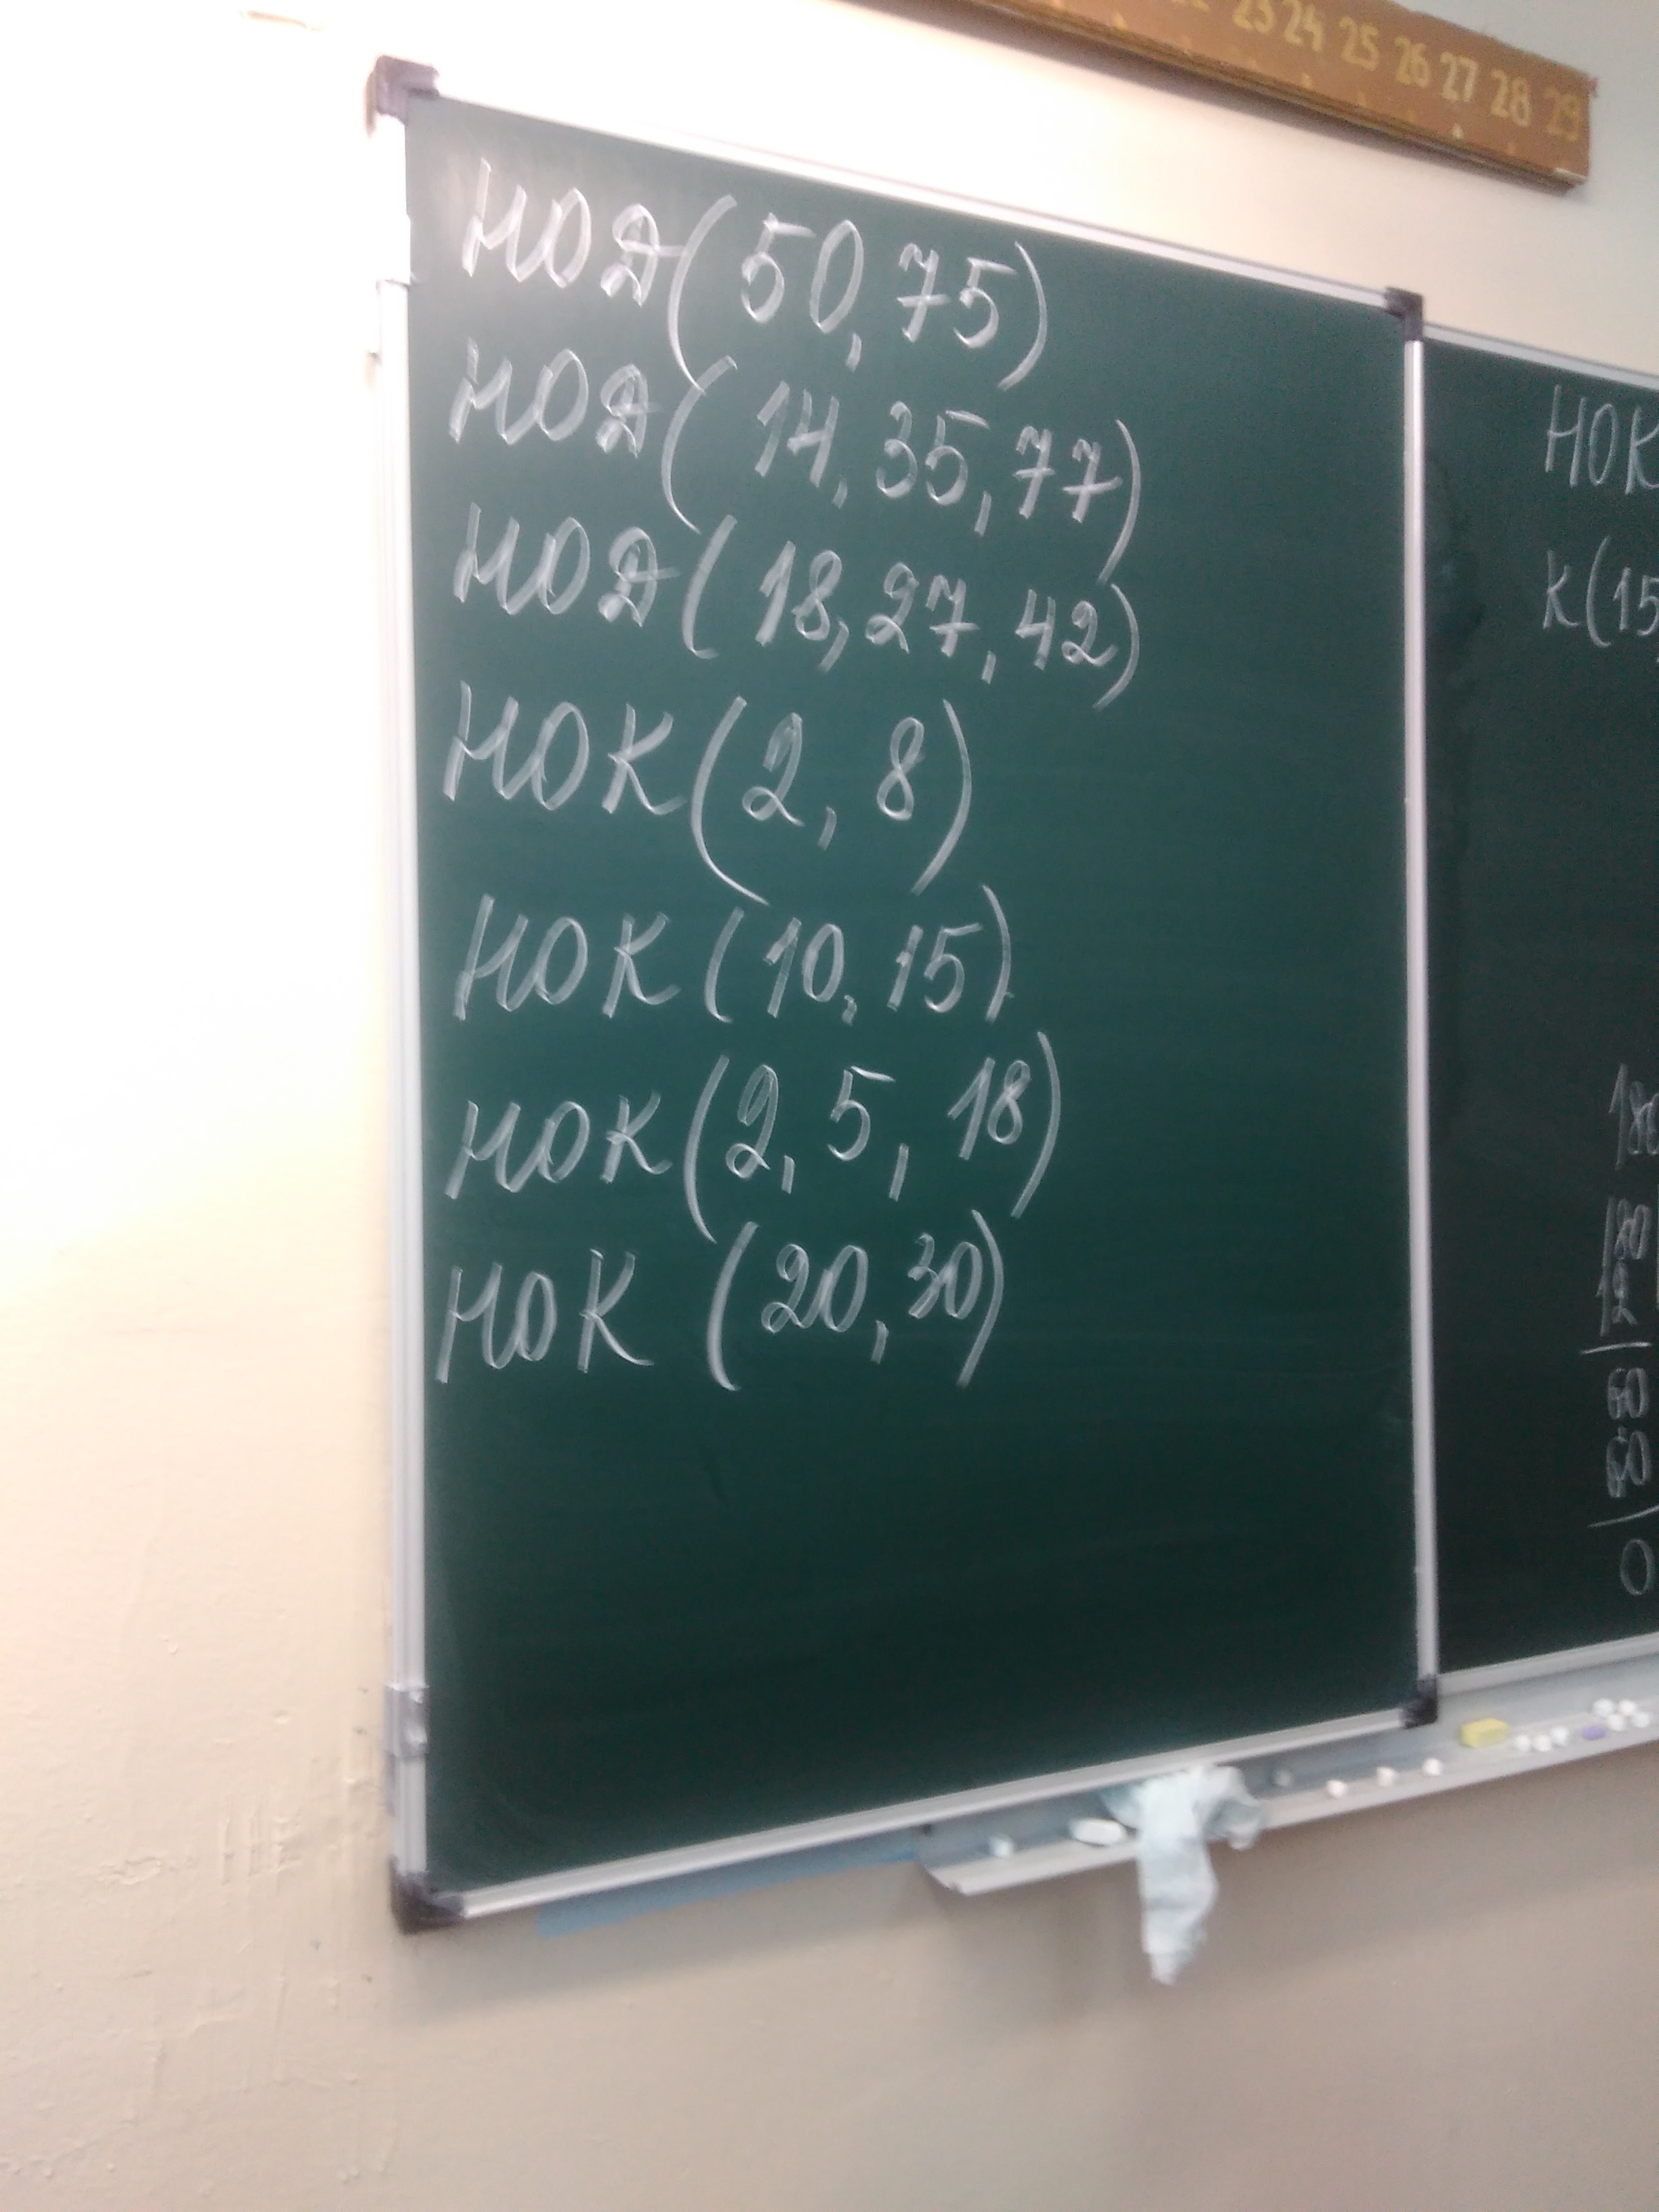 23 24 25 26 27 28 29
НОД(50, 75)
НОД(14, 35, 77)
НОД(18, 27, 42)
НОК(2, 8)
НОК(10, 15)
НОК(2, 5, 18)
НОК (20, 30)
НОК
К(15
180
12
60
60
0